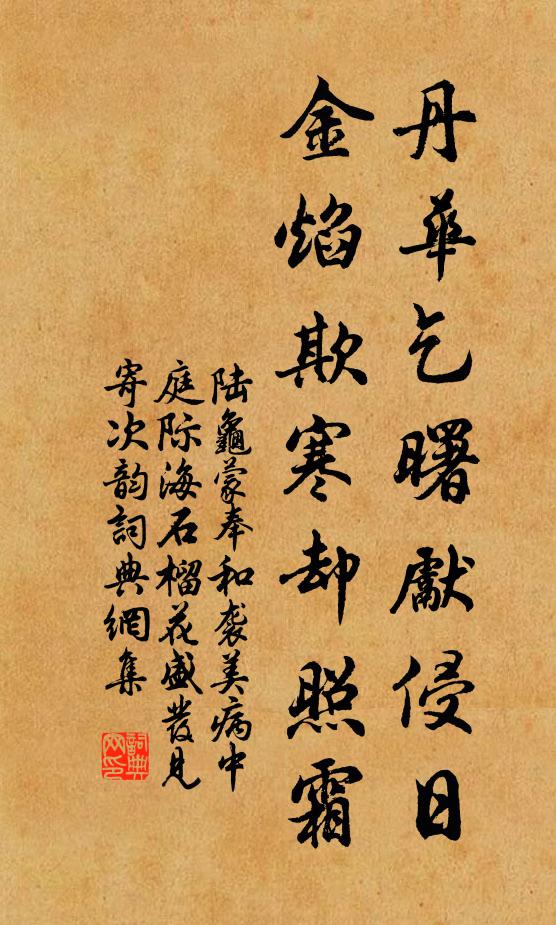 丹華乞曙獻侵日
金焰欺寒却照霜
陆龜蒙奉和袭美病中
庭际海石榴花盛發见
寄次韵詞典網集
詞典
网印